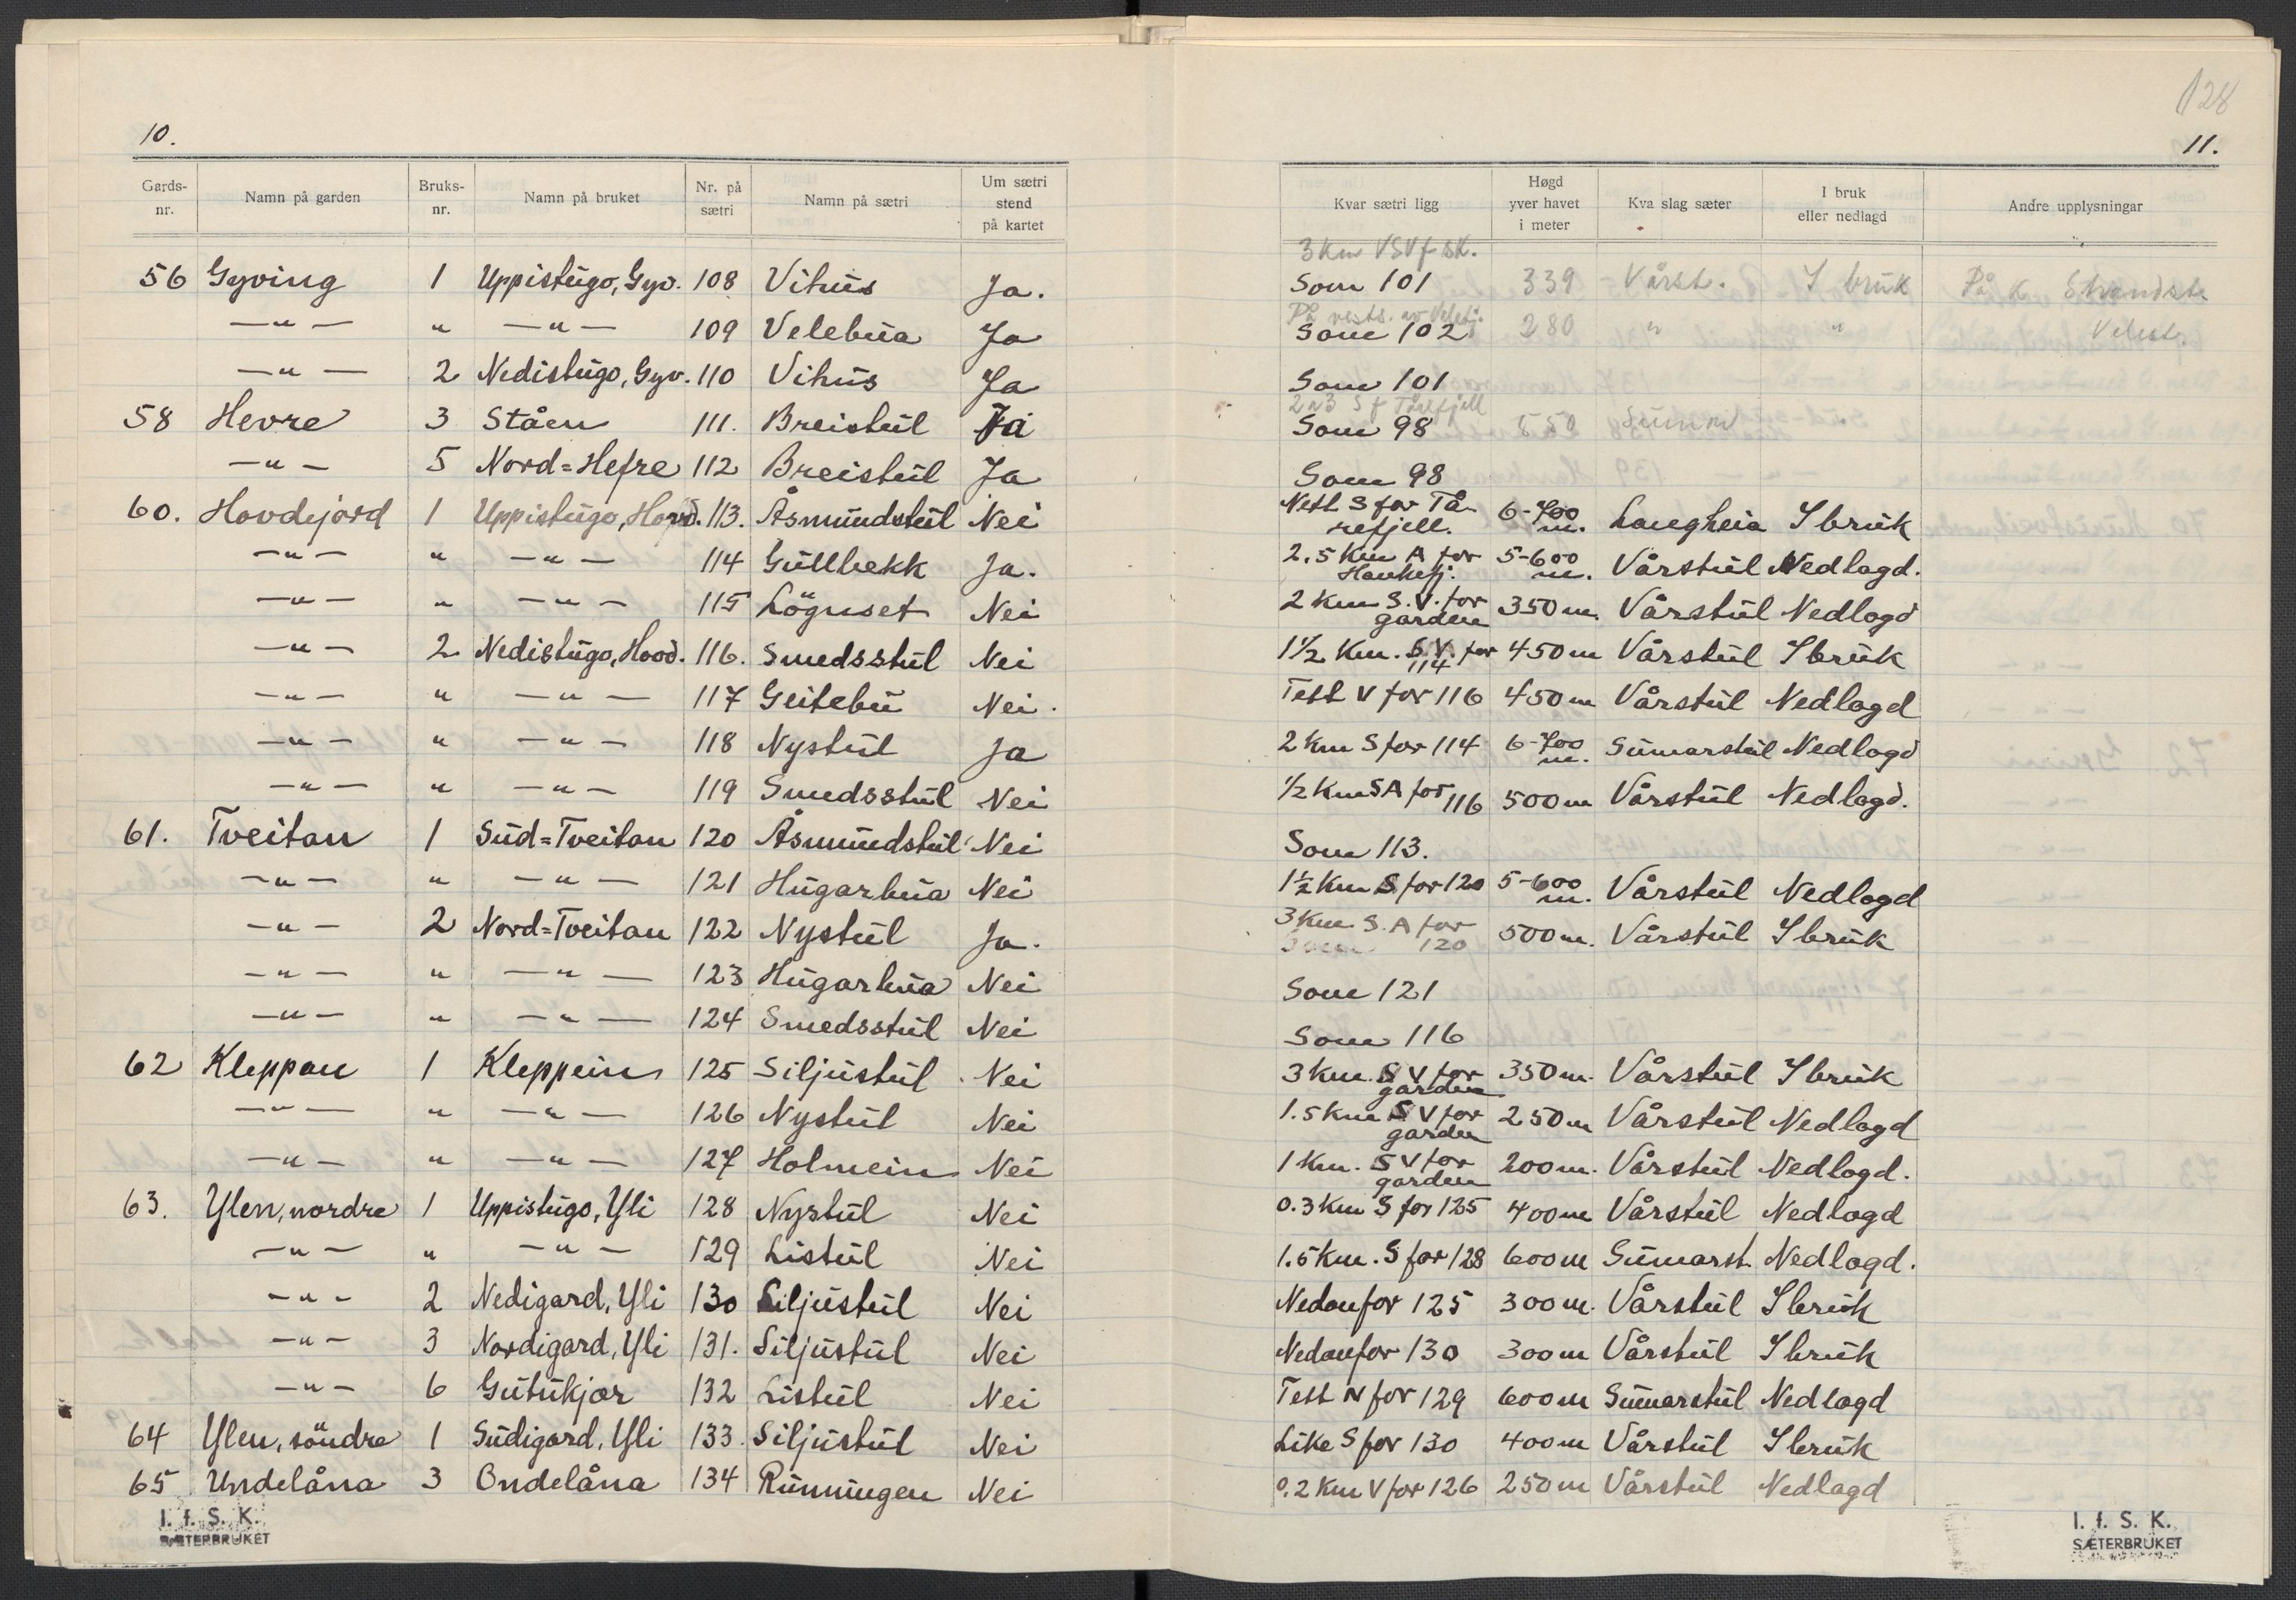 10.
Gards-nr. Namn på garden Bruks-nr. Namn på bruket Nr. på sætri Namn på sætri Um sætri stend på kartet
56 Gyving 1 Uppistugo, Gyv. 108 Vihus Ja.
—"— " —"— 109 Velebua Ja
—"— 2 Nedistugo, Gyv. 110 Vihus Ja
58 Hevre 3 Ståen 111. Breistul Ja
—"— 5 Nord=Hefre 112 Breistul Ja
60. Hovdejord 1 Uppistugo, Hovd. 113. Åsmundstul Nei
—"— " —"— 114 Gullbekk Ja.
—"— " —"— 115 Lögnset Nei
—"— 2 Nedistugo, Hovd. 116. Smedsstul Nei
—"— " —"— 117 Geitebu Nei.
—"— " —"— 118 Nystul Ja
—"— " —"— 119 Smedsstul Nei
61. Tveitan 1 Sud=Tveitan 120 Åsmundstul Nei
—"— " —"— 121 Hugarbua Nei
—"— 2 Nord=Tveitan 122 Nystul Ja.
—"— " —"— 123 Hugarbua Nei
—"— " —"— 124 Smedsstul Nei
62 Kleppan 1 Kleppein 125 Siljustul Nei
—"— " —"— 126 Nystul Nei
—"— " —"— 127 Holmein Nei
63. Ylen, nordre 1 Uppistugo, Yli 128 Nystul Nei
—"— " —"— 129 Listul Nei
—"— 2 Nedigard, Yli 130 Siljustul Nei
—"— 3 Nordigard, Yli 131. Siljustul Nei
—"— 6 Gutukjær 132 Listul Nei
64 Ylen, söndre 1 Sudigard, Yli 133. Siljustul Nei
65 Undelåna 3 Ondelåna 134 Runningen Nei
I. f. S. K.
SÆTERBRUKET
128
11.
Kvar sætri ligg Høgd yver havet i meter Kva slag sæter I bruk eller nedlagd Andre upplysningar
3 km VSV f sk.
Som 101 339 Vårst. I bruk På K Strandst.
På vests. av
Som 102 280 " "
Som 101
2 a 3 S f Tårefjell
Som 98 550
Som 98
Nett S for Tå-
refjell. 6-700 m. Langheia I bruk
2.5 km A for
Haukefj. 5-600 m. Vårstul Nedlagd.
2 km S.V. for
garden 350 m. Vårstul Nedlagd
1 1/2 km. S.V. for
114 450 m Vårstul I bruk
Tett V for 116 450 m Vårstul Nedlagd
2 km S for 114 6-700 m. Sumarstul Nedlagd
1/2 km SA for 116 500 m Vårstul Nedlagd.
Som 113.
1 1/2 km S for 120 5-600 m. Vårstul Nedlagd
3 km S.A for
120 500 m. Vårstul I bruk
Som 121
Som 116
3 km. S V for
garden 350 m. Vårstul I bruk
1.5 km S V for
garden 250 m Vårstul Nedlagd
1 km. S V for
garden 200 m. Vårstul Nedlagd.
0.3 km S for 125 400 m Vårstul Nedlagd
1.5 km. S for 128 600 m Sumarst. Nedlagd.
Nedanfor 125 300 m. Vårstul I bruk
Nedanfor 130 300 m Vårstul I bruk
Tett N for 129 600 m Sumarstul Nedlagd
Like S for 130 400 m Vårstul I bruk
0.2 km V for 126 250 m Vårstul Nedlagd
I. f. S. K.
SÆTERBRUKET